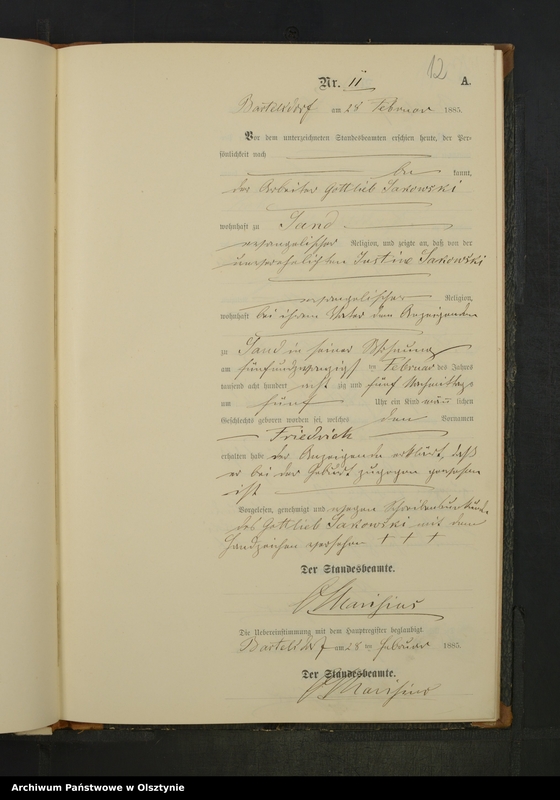 12
Nr. 11 A.
Bartelsdorf am 28 Februar 1885.
Vor dem unterzeichneten Standesbeamten erschien heute, der Per-
sönlichkeit nach
be kannt,
der Arbeiter Gottlieb Sakowski
wohnhaft zu Sand
evangelischer Religion, und zeigte an, daß von der
unverehelichten Justine Sakowski
evangelischer Religion,
wohnhaft bei ihrem Vater dem Anzeigenden
zu Sand in seiner Wohnung
am fünfundzwanzigsten Februar des Jahres
tausend acht hundert acht zig und fünf Nachmittags
um fünf Uhr ein Kind männ lichen
Geschlechts geboren worden sei, welches den Vornamen
Friedrich
erhalten habe der Anzeigende erklärt, daß
er bei der Geburt zugegen gewesen
ist
Vorgelesen, genehmigt und wegen
des Gottlieb Sakowski mit dem
Handzeichen versehen + + +
Der Standesbeamte.
Die Uebereinstimmung mit dem Hauptregister beglaubigt.
Bartelsdorf am 28 ten Februar 1885.
Der Standesbeamte.
Archiwum Państwowe w Olsztynie